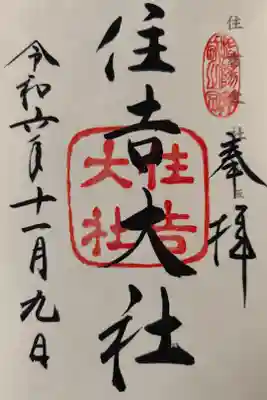 奉拝
住吉大社
住吉大社
令和六年十一月九日